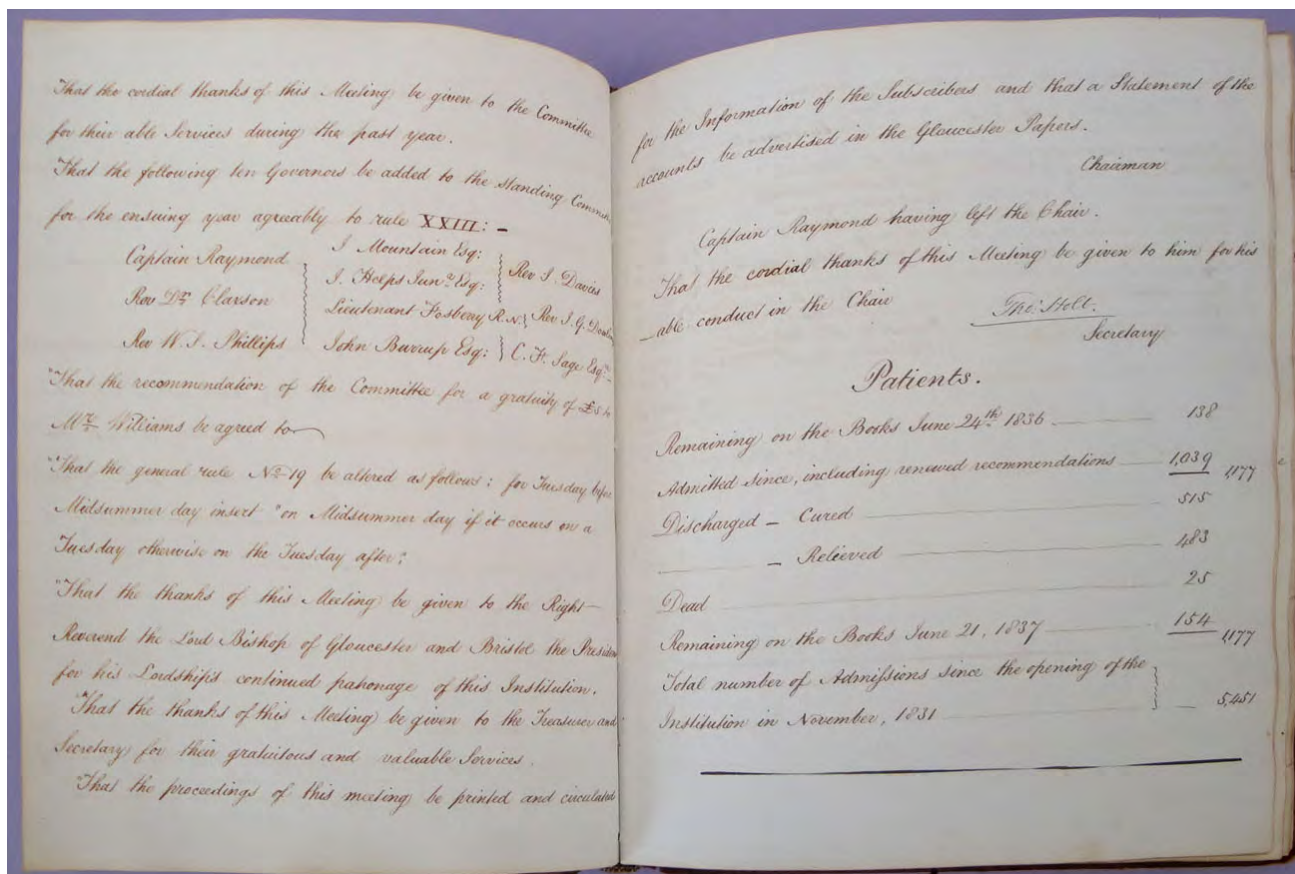 "That the cordial thanks of this Meeting be given to the Committee
for their able Services during the past year.
"That the following ten Governors be added to the Standing
for the ensuing year agreeably to rule XXIII: -
Captain Raymond
Rev Dr. Claxson
Rev W. S. Phillips
J Mountain Esq:
J. Helps Junr. Esq:
Lieutenant Fosbery R.N.
John Burrup Esq:
Rev J. Davies
Rev J. G.
C. Ft. Sage Esqre.
"That the recommendation of the Committee for a gratuity of £5 to
Mr. Williams be agreed to
"That the general rule No. 19 be altered as follows: for Tuesday before
Midsummer day insert "on Midsummer day if it occurs on a
Tuesday otherwise on the Tuesday after:
"That the thanks of this Meeting be given to the Right
Reverend the Lord Bishop of Gloucester and Bristol the President
for his Lordship's continued patronage of this Institution.
"That the thanks of this Meeting be given to the Treasurer and
Secretary for their gratuitous and valuable Services.
"That the proceedings of this meeting be printed and circulated
for the Information of the Subscribers and that a Statement of the
accounts be advertised in the Gloucester Papers.
Chairman
Captain Raymond having left the Chair.
That the cordial thanks of this Meeting be given to him for his
able conduct in the Chair
Tho: Holt.
Secretary
Patients.
Remaining on the Books June 24th. 1836 138
Admitted since, including renewed recommendations 1,039 1,177
Discharged - Cured 515
- Relieved 483
Dead 25
Remaining on the Books June 21, 1837 154 1,177
Total number of Admissions since the opening of the
Institution in November, 1831 5,451